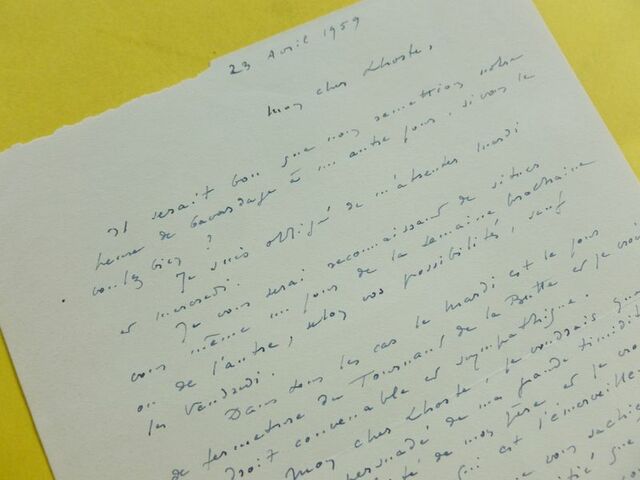 23 Avril 1959
Mon cher Lhoste,
Il serait bon que nous remettions notre
heure de bavardage à un autre jour. si vous le
voulez bien ?
Je suis obligé de m'absenter mardi
et mercredi.
Je vous serai reconnaissant de situer
vous même un jour de la semaine prochaine
ou de l'autre, selon vos possibilités, sauf
les Vendredi.
Dans tous les cas le mardi est le jour
de fermeture du Tournant de la Butte et je crois
droit convenable et sympathique.
Mon cher Lhoste, je voudrais que
persuadé de ma grande timidit
de mon
qui est l'émerveille
que vous sachie
que